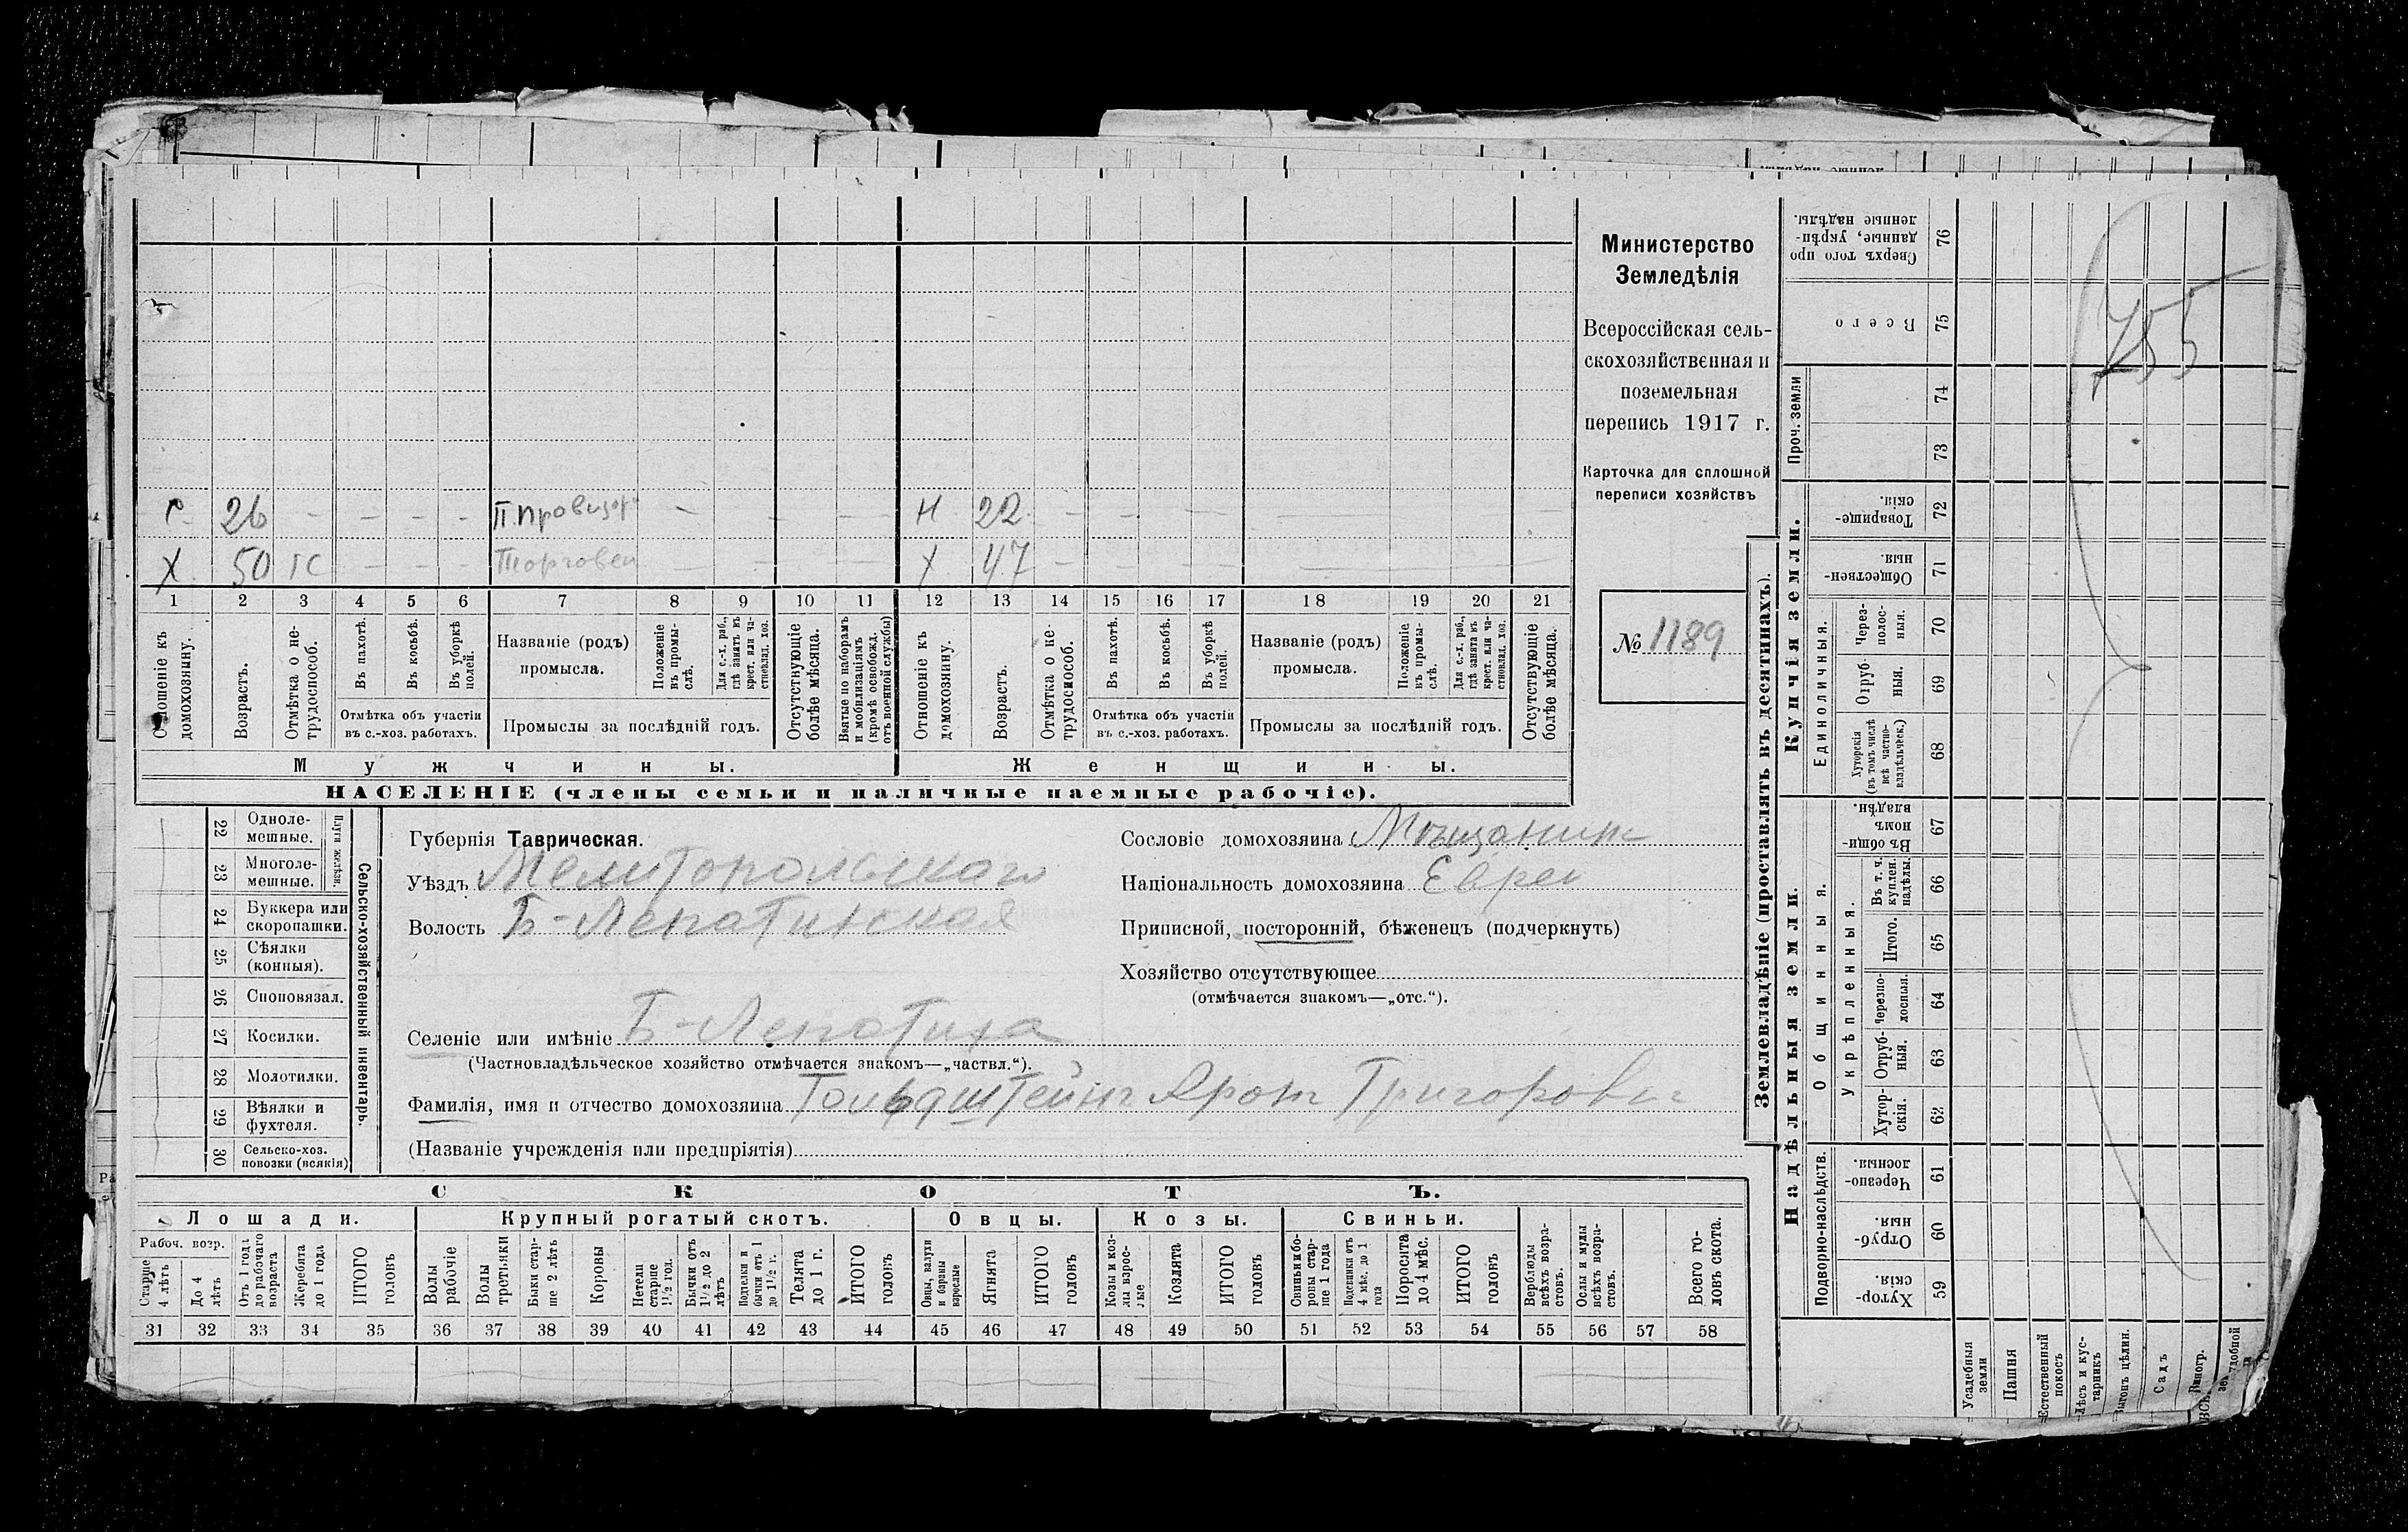 Министерство
Земледѣлія
Всероссійская сель-
скохозяйственная и
поземельная
перепись 1917 г.
Карточка для сплошной
переписи хозяйствъ
№ 1189
755
С 26 – – – – П. провизор – – – – Н 22 – – – – – – – –
Х 50 гс – – – Торговец – – – – Х 47 – – – – – – –
1 2 3 4 5 6 7 8 9 10 11 12 13 14 15 16 17 18 19 20 21
Отношеніе къ домохозяину.
Возрастъ.
Отмѣтка о не-
трудоспособ.
Въ пахотѣ.
Въ косьбѣ.
Въ уборкѣ
полей.
Отмѣтка объ участіи
въ с.-хоз. работахъ.
Названіе (родъ)
промысла.
Положеніе
въ промы-
слѣ.
Для с.-х. раб.,
гдѣ занятъ въ
крест. или ча-
стновлад. хоз.
Промыслы за послѣдній годъ.
Отсутствующіе
болѣе мѣсяца.
Взятые по наборамъ
и мобилизаціямъ
(кромѣ освобожд.
отъ военной службы)
Отношеніе къ
домохозяину.
Возрастъ.
Отмѣтка о не-
трудоспособ.
Въ пахотѣ.
Въ косьбѣ.
Въ уборкѣ
полей.
Отмѣтка объ участіи
въ с.-хоз. работахъ.
Названіе (родъ)
промысла.
Положеніе
въ промы-
слѣ.
Для с.-х. раб.,
гдѣ занята въ
крест. или ча-
стновлад. хоз.
Промыслы за послѣдній годъ.
Отсутствующіе
болѣе мѣсяца.
Мужчины.
Женщины.
НАСЕЛЕНІЕ (члены семьи и наличные наемные рабочіе).
22 Одноле-
мешные.
23 Многоле-
мешные.
Плуги желѣзн.
24 Буккера или
скоропашки.
25 Сѣялки
(конныя).
26 Сноповязал.
27 Косилки.
28 Молотилки.
29 Вѣялки и
фухтеля.
30 Сельско-хоз.
повозки (всякія)
Сельско-хозяйственный инвентарь.
Губернія Таврическая.
Уѣздъ Мелитопольскаго
Волость Б-Лепатинская
Селеніе или имѣніе Б-Лепатиха
(Частновладѣльческое хозяйство отмѣчается знакомъ—„частвл.“).
Фамилія, имя и отчество домохозяина Гольдштейнъ Аронъ Григоровъ
(Названіе учрежденія или предпріятія)
Сословіе домохозяина Мѣщанинъ
Національность домохозяина Евреи
Приписной, посторонній, бѣженецъ (подчеркнуть)
Хозяйство отсутствующее
(отмѣчается знакомъ—„отс.“).
СКОТЪ.
Лошади.
Крупный рогатый скотъ.
Овцы.
Козы.
Свиньи.
Рабоч. возр.
Старше
4 лѣтъ
До 4
лѣтъ
Отъ 1 года
до рабочаго
возраста
Жеребята
до 1 года
ИТОГО
головъ
Волы
рабочіе
Волы
третьяки
Быки стар-
ше 2 лѣтъ
Коровы
Нетели
старше
1½ год.
Бычки отъ
1½ до 2
лѣтъ
Подтелки и
бычки отъ 1
до 1½ г.
Телята
до 1 г.
ИТОГО
головъ
Овцы, валухи
и бараны
взрослые
Ягнята
ИТОГО
головъ
Козы и коз-
лы взрос-
лые
Козлята
ИТОГО
головъ
Свиньи и бо-
ровы стар-
ше 1 года
Подсвинки отъ
4 мѣс. до 1
года
Поросята
до 4 мѣс.
ИТОГО
головъ
Верблюды
всѣхъ возра-
стовъ.
Ослы и мулы
всѣхъ возра-
стовъ.
Всего го-
ловъ скота.
31 32 33 34 35 36 37 38 39 40 41 42 43 44 45 46 47 48 49 50 51 52 53 54 55 56 57 58
Землевладѣніе (проставлять въ десятинахъ).
Купчія земли.
Надѣльныя земли.
Сверхъ того про
данные, укрѣп-
ленные надѣлы. 76
Всего 75
Проч. земли
74
73
Товарище-
скія. 72
Обществен-
ныя. 71
Единоличныя.
Через-
полос-
ныя. 70
Отруб-
ныя. 69
Хуторскія
(въ томъ числѣ
всѣ частно-
владѣльческ.) 68
Общинныя.
Въ общи-
номъ
владѣн. 67
Укрѣпленныя.
Въ т. ч.
куплен.
надѣлы. 66
Итого. 65
Черезпо-
лосныя. 64
Отруб-
ныя. 63
Хутор-
скія. 62
Подворно-наслѣдств.
Черезпо-
лосныя. 61
Отруб-
ныя. 60
Хутор-
скія. 59
Усадебныя
земли
Пашня
Естественный
покосъ
Лѣсъ и кус-
тарникъ
Выгонъ цѣлин.
Садъ
Виногр.